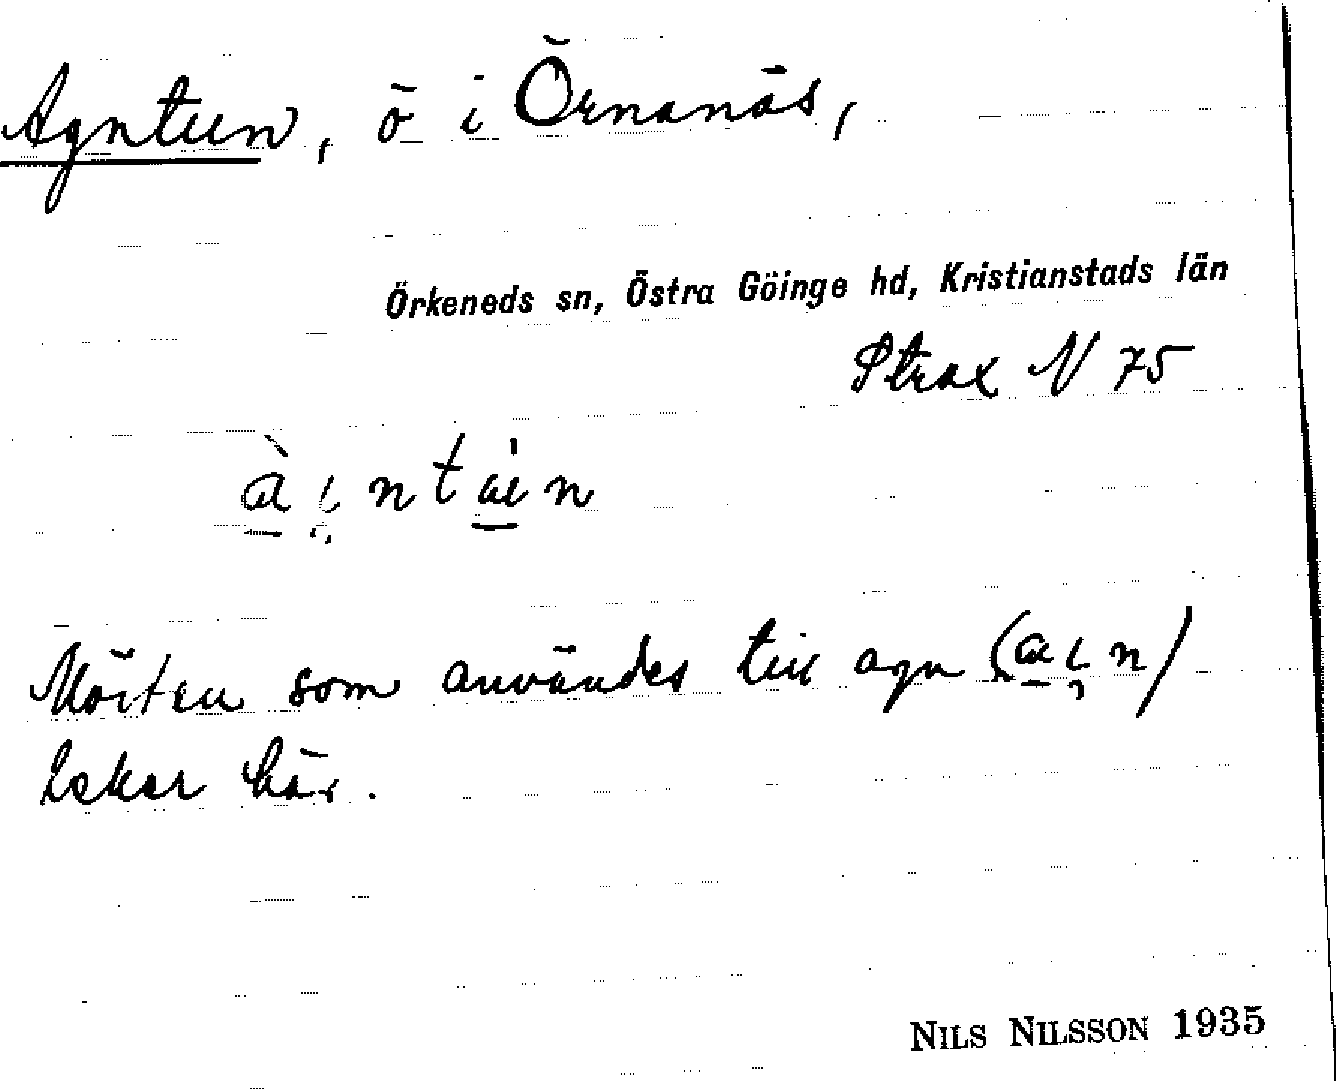 Agnteen, ö i Örnanäs,
Örkeneds sn, Östra Göinge hd, Kristianstads län
Strax N 75
Mörten som användes till agn
leker här.
NILS NILSSON 1935